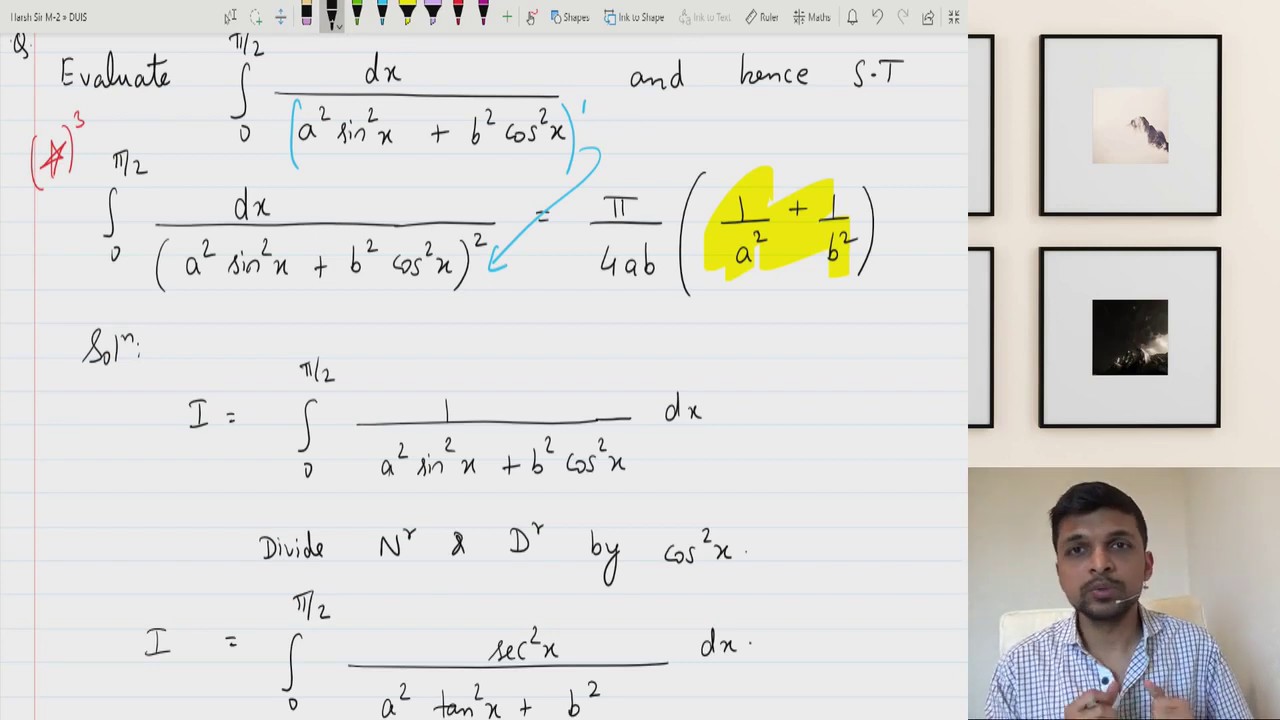 Harsh Sir M-2 > DUIS
Shapes Ink to Shape Ink to Text Ruler Maths
Q. Evaluate ∫₀^{π/2} dx / (a² sin²x + b² cos²x)¹ and hence S.T
(☆)³
∫₀^{π/2} dx / (a² sin²x + b² cos²x)² = π/4ab (1/a² + 1/b²)
Solⁿ:
I = ∫₀^{π/2} 1 / (a² sin²x + b² cos²x) dx
Divide Nʳ & Dʳ by cos²x.
I = ∫₀^{π/2} sec²x / (a² tan²x + b²) dx.